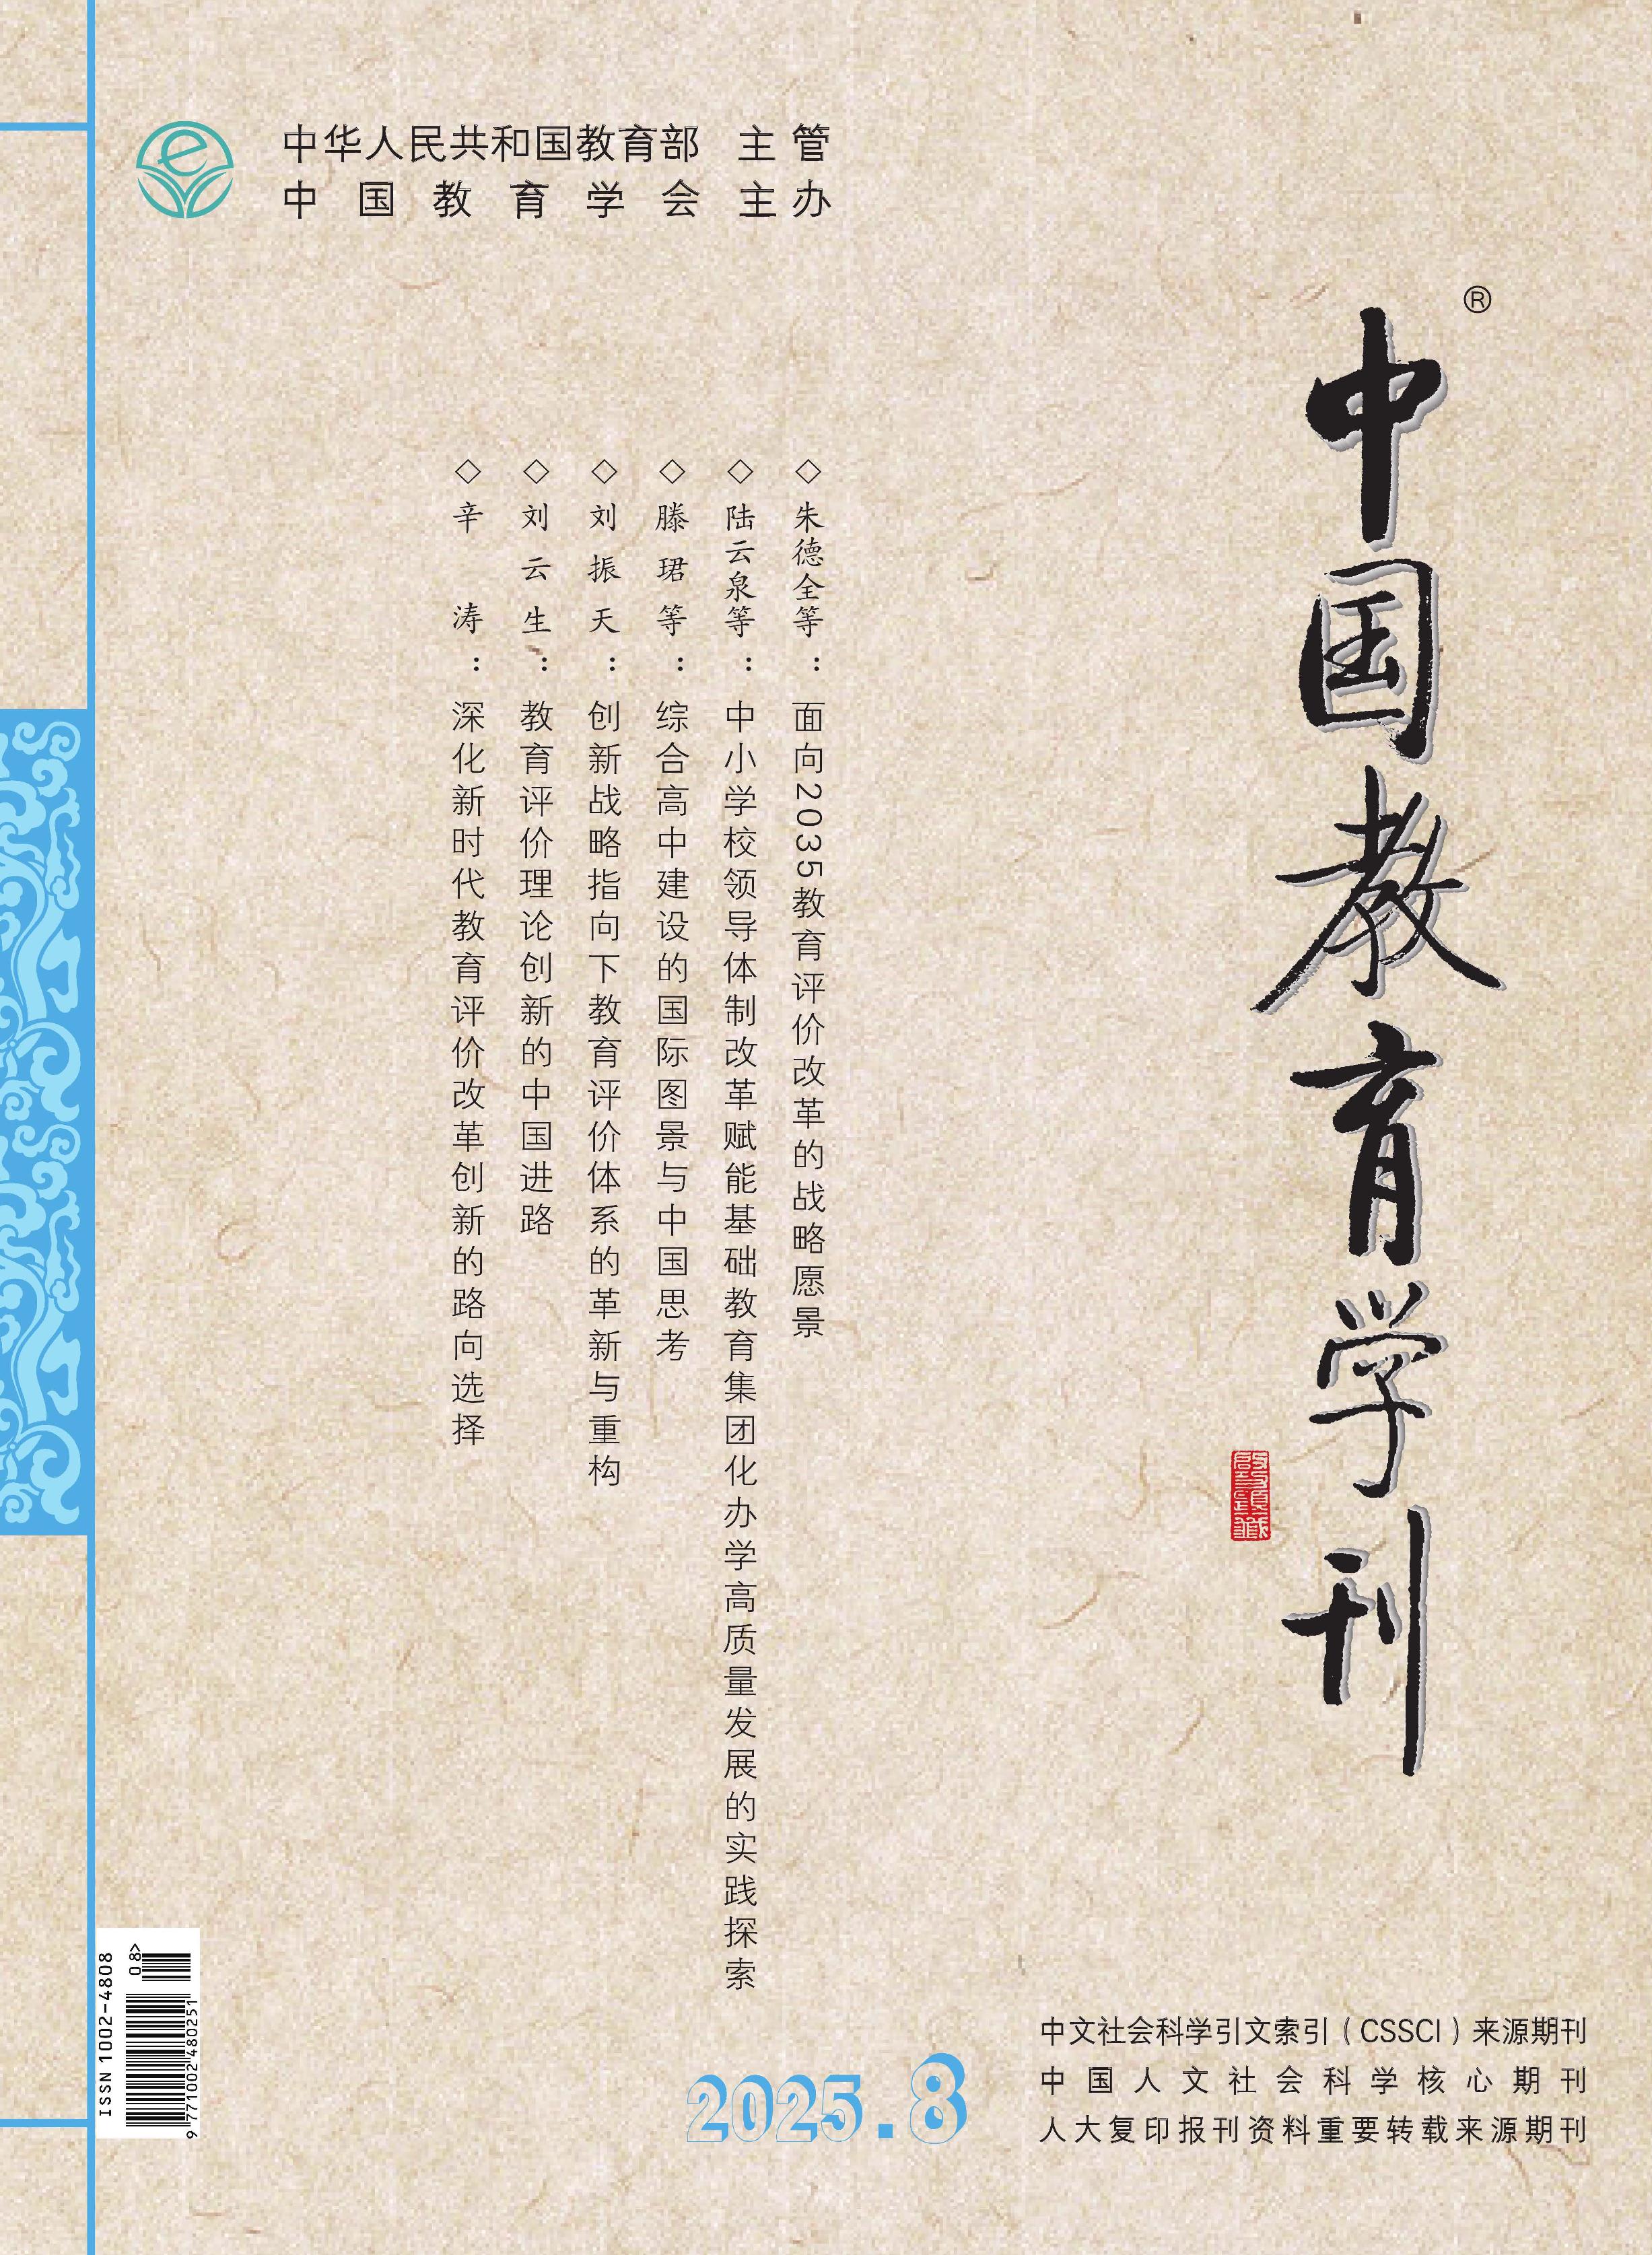 中华人民共和国教育部 主管
中国教育学会 主办
®
中国教育学刊
◇朱德全等：面向2035教育评价改革的战略愿景
◇陆云泉等：中小学校领导体制改革赋能基础教育集团化办学高质量发展的实践探索
◇滕珺等：综合高中建设的国际图景与中国思考
◇刘振天：创新战略指向下教育评价体系的革新与重构
◇刘云生：教育评价理论创新的中国进路
◇辛涛：深化新时代教育评价改革创新的路向选择
ISSN 1002-4808
08>
9 771002 480251
2025.8
中文社会科学引文索引（CSSCI）来源期刊
中国人文社会科学核心期刊
人大复印报刊资料重要转载来源期刊